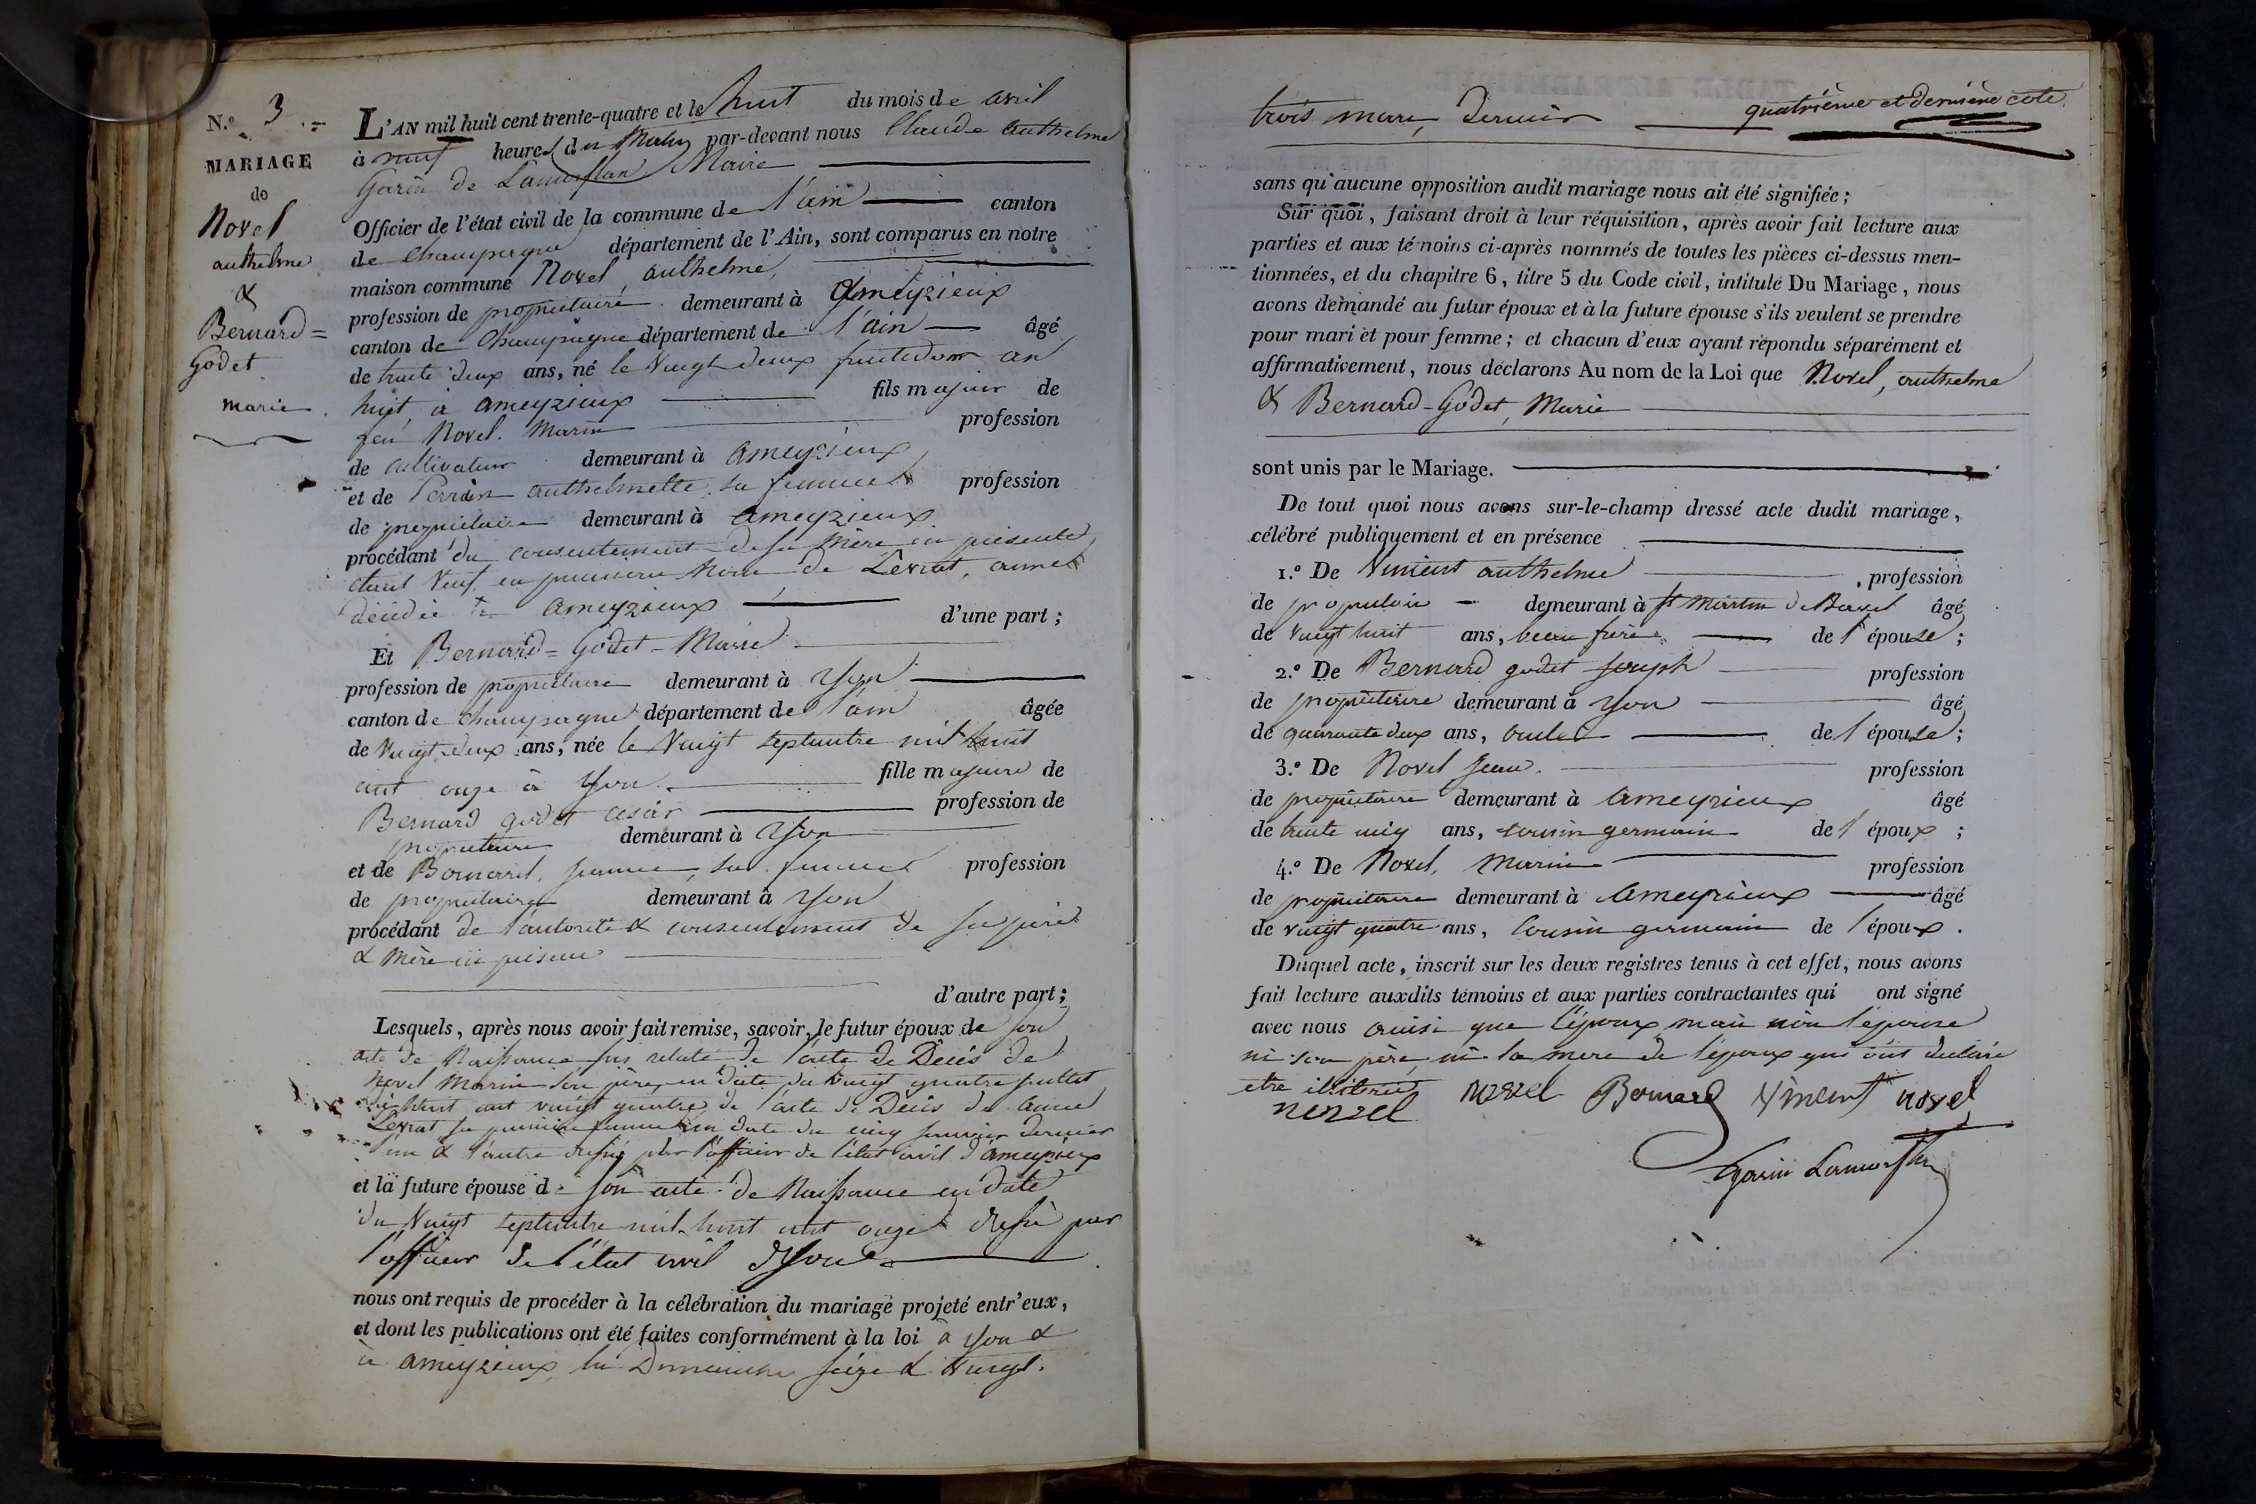 N.º 3
MARIAGE
de
Novel
anthelme
&
Bernard =
Godet
marie
L'AN mil huit cent trente-quatre et le huit du mois de avril
à neuf heures du Matin par-devant nous Claude Anthelme
Garin de Lamorflan Maire
Officier de l'état civil de la commune de l'ain canton
de Champagne département de l'Ain, sont comparus en notre
maison commune Novel anthelme,
profession de propriétaire demeurant à Ameyzieux
canton de Champagne département de l'ain âgé
de trente deux ans, né le Vingt deux fructidor an
huit à ameyzieux fils majeur de
feu Novel. Marin profession
de cultivateur demeurant à ameyzieux
et de Perrin anthelmette sa femme profession
de propriétaire demeurant à ameyzieux
procédant du consentement de sa Mère ici présente
étant Veuf en premiere Noce de Levrat, anne
décédée à ameyzieux d'une part;
Et Bernard = Godet - Marie
profession de propriétaire demeurant à Yon
canton de champagne département de l'ain âgée
de Vingt deux ans, née le Vingt septembre mil huit
cent onze à Yon fille majeure de
Bernard godet cesar profession de
propriétaire demeurant à Yon
et de Bornarel, jeanne, sa femme profession
de propriétaire demeurant à Yon
procédant de l'autorité & consentement de ses père
& mère ici présent
d'autre part;
Lesquels, après nous avoir fait remise, savoir, le futur époux de son
acte de Naissance sus relaté de l'acte de Décès de
Novel Marin son père, en date du vingt quatre juillet
huit cent vingt quatre, de l'acte de Décès de anne
Levrat sa première femme en date du cinq janvier dernier
l'un & l'autre dressé par l'officier de l'état civil d'ameyzieux
et la future épouse de son acte de Naissance en date
du Vingt septembre mil huit cent onze dressé par
l'officier de l'état civil d'Yon
nous ont requis de procéder à la célébration du mariage projeté entr'eux,
et dont les publications ont été faites conformément à la loi à Yon &
à ameyzieux, les Dimanches seize & Vingt.
trois mars, Dernier quatrième et dernière cote.
sans qu'aucune opposition audit mariage nous ait été signifiée;
Sur quoi, faisant droit à leur réquisition, après avoir fait lecture aux
parties et aux témoins ci-après nommés de toutes les pièces ci-dessus men-
tionnées, et du chapitre 6, titre 5 du Code civil, intitulé Du Mariage, nous
avons demandé au futur époux et à la future épouse s'ils veulent se prendre
pour mari et pour femme; et chacun d'eux ayant répondu séparément et
affirmativement, nous déclarons Au nom de la Loi que Novel, anthelme
& Bernard-Godet, Marie
sont unis par le Mariage.
De tout quoi nous avons sur-le-champ dressé acte dudit mariage,
célébré publiquement et en présence
1.º De Vincent anthelme profession
de propriétaire demeurant à St Martin de Bavel âgé
de vingt huit ans, beau frère de l'épouse;
2.º De Bernard godet joseph profession
de propriétaire demeurant à Yon âgé
de quarante deux ans, oncle de l'épouse;
3.º De Novel Jean. profession
de propriétaire demeurant à ameyzieux âgé
de trente cinq ans, cousin germain de l'époux;
4.º De Novel, Marin profession
de propriétaire demeurant à Ameyzieux âgé
de vingt quatre ans, Cousin germain de l'époux.
Duquel acte, inscrit sur les deux registres tenus à cet effet, nous avons
fait lecture auxdits témoins et aux parties contractantes qui ont signé
avec nous ainsi que l'époux mais non l'épouse
ni son père, ni la mere de l'époux qui ont déclaré
etre illitérés
novel novel Bernard Vincent novel
Garin Lamorflan